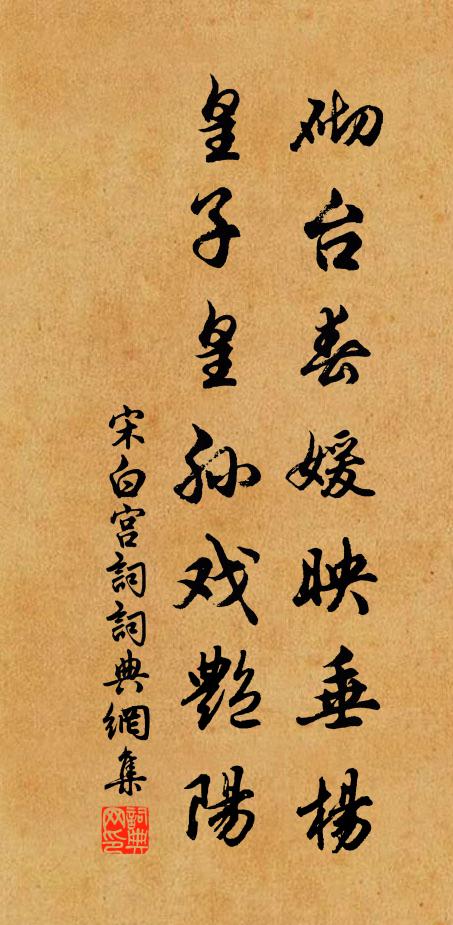 砌台春媛映垂楊
皇子皇孙戏艷陽
宋白宫詞詞典網集
詞典网印